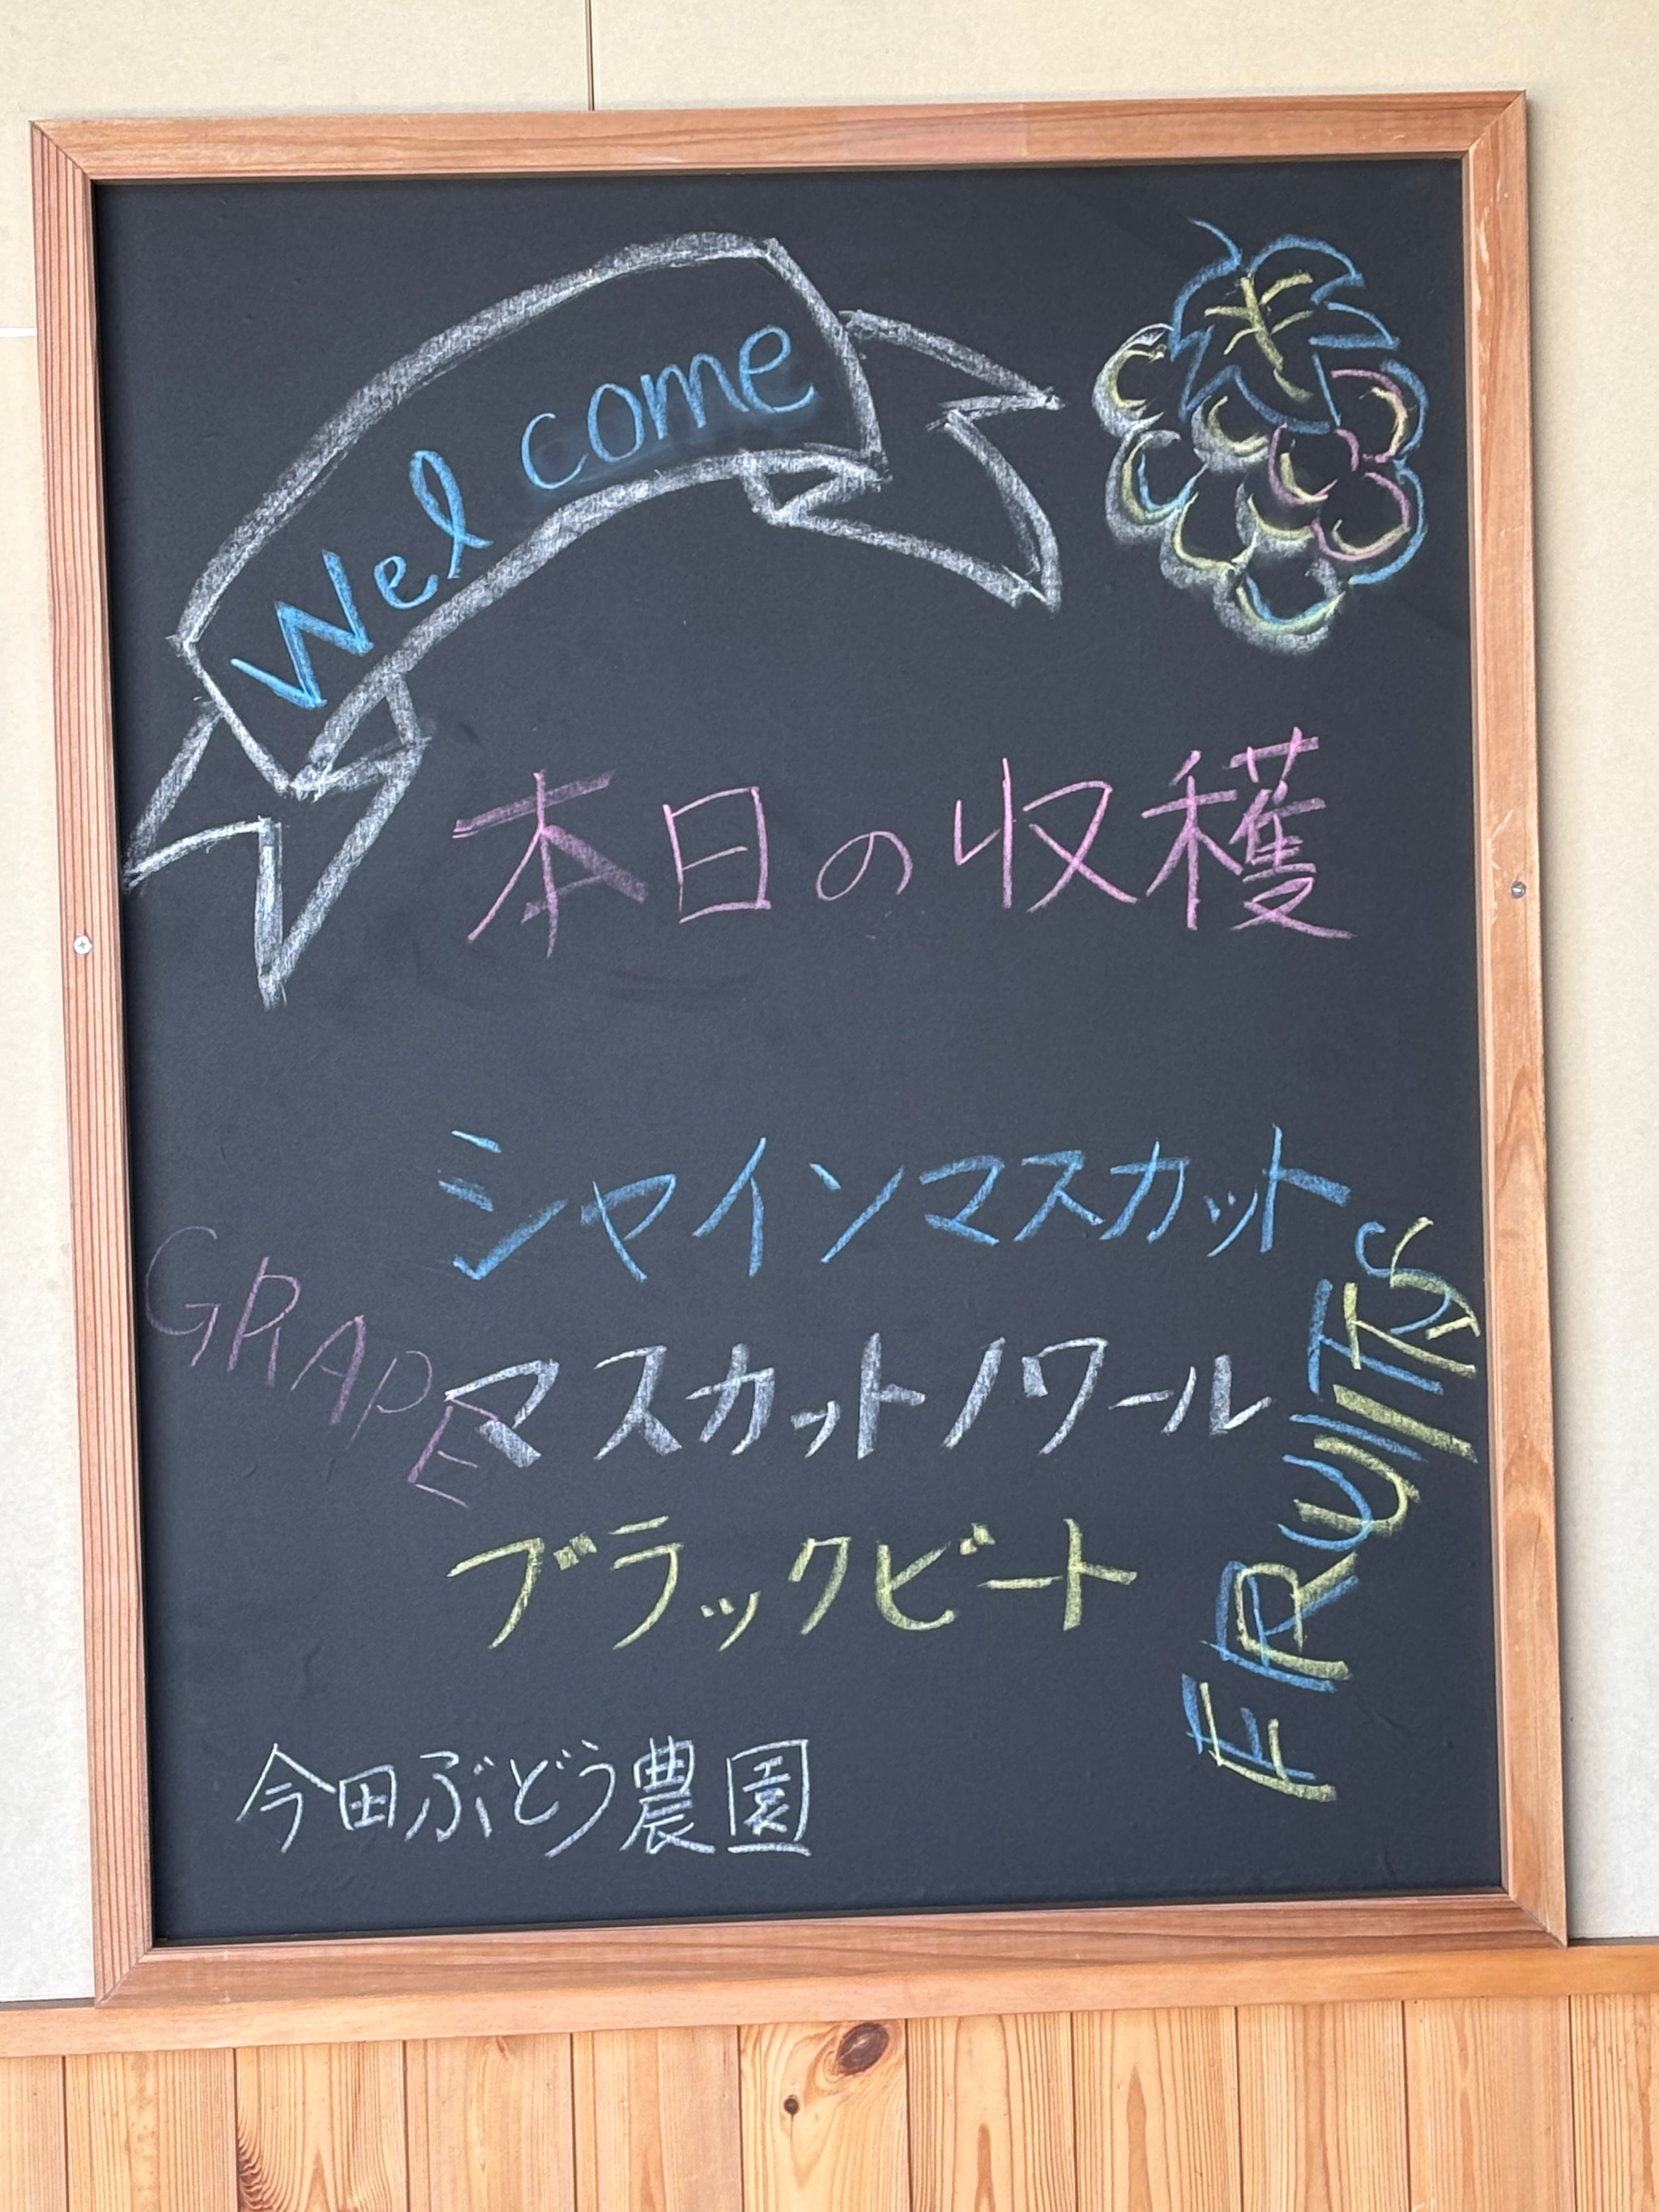 Welcome
本日の収穫
シャインマスカット
GRAPE
マスカットノワール
ブラックビート
FRUITS
今田ぶどう農園